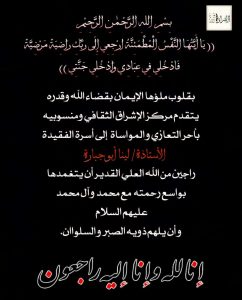 بسم الله الرحمن الرحيم
((يا أيتها النفس المطمئنة إرجعي إلى ربك راضية مرضية
فادخلي في عبادي وادخلي جنتي))
بقلوب ملؤها الإيمان بقضاء الله وقدره
يتقدم مركز الإشراق الثقافي ومنسوبيه
بأحر التعازي والمواساة إلى أسرة الفقيدة
الأستاذة/ لينا أبو جبارة
راجين من الله العلي القدير أن يتغمدها
بواسع رحمته مع محمد وآل محمد
عليهم السلام
وأن يلهم ذويه الصبر والسلوان.
إنا لله وإنا إليه راجعون